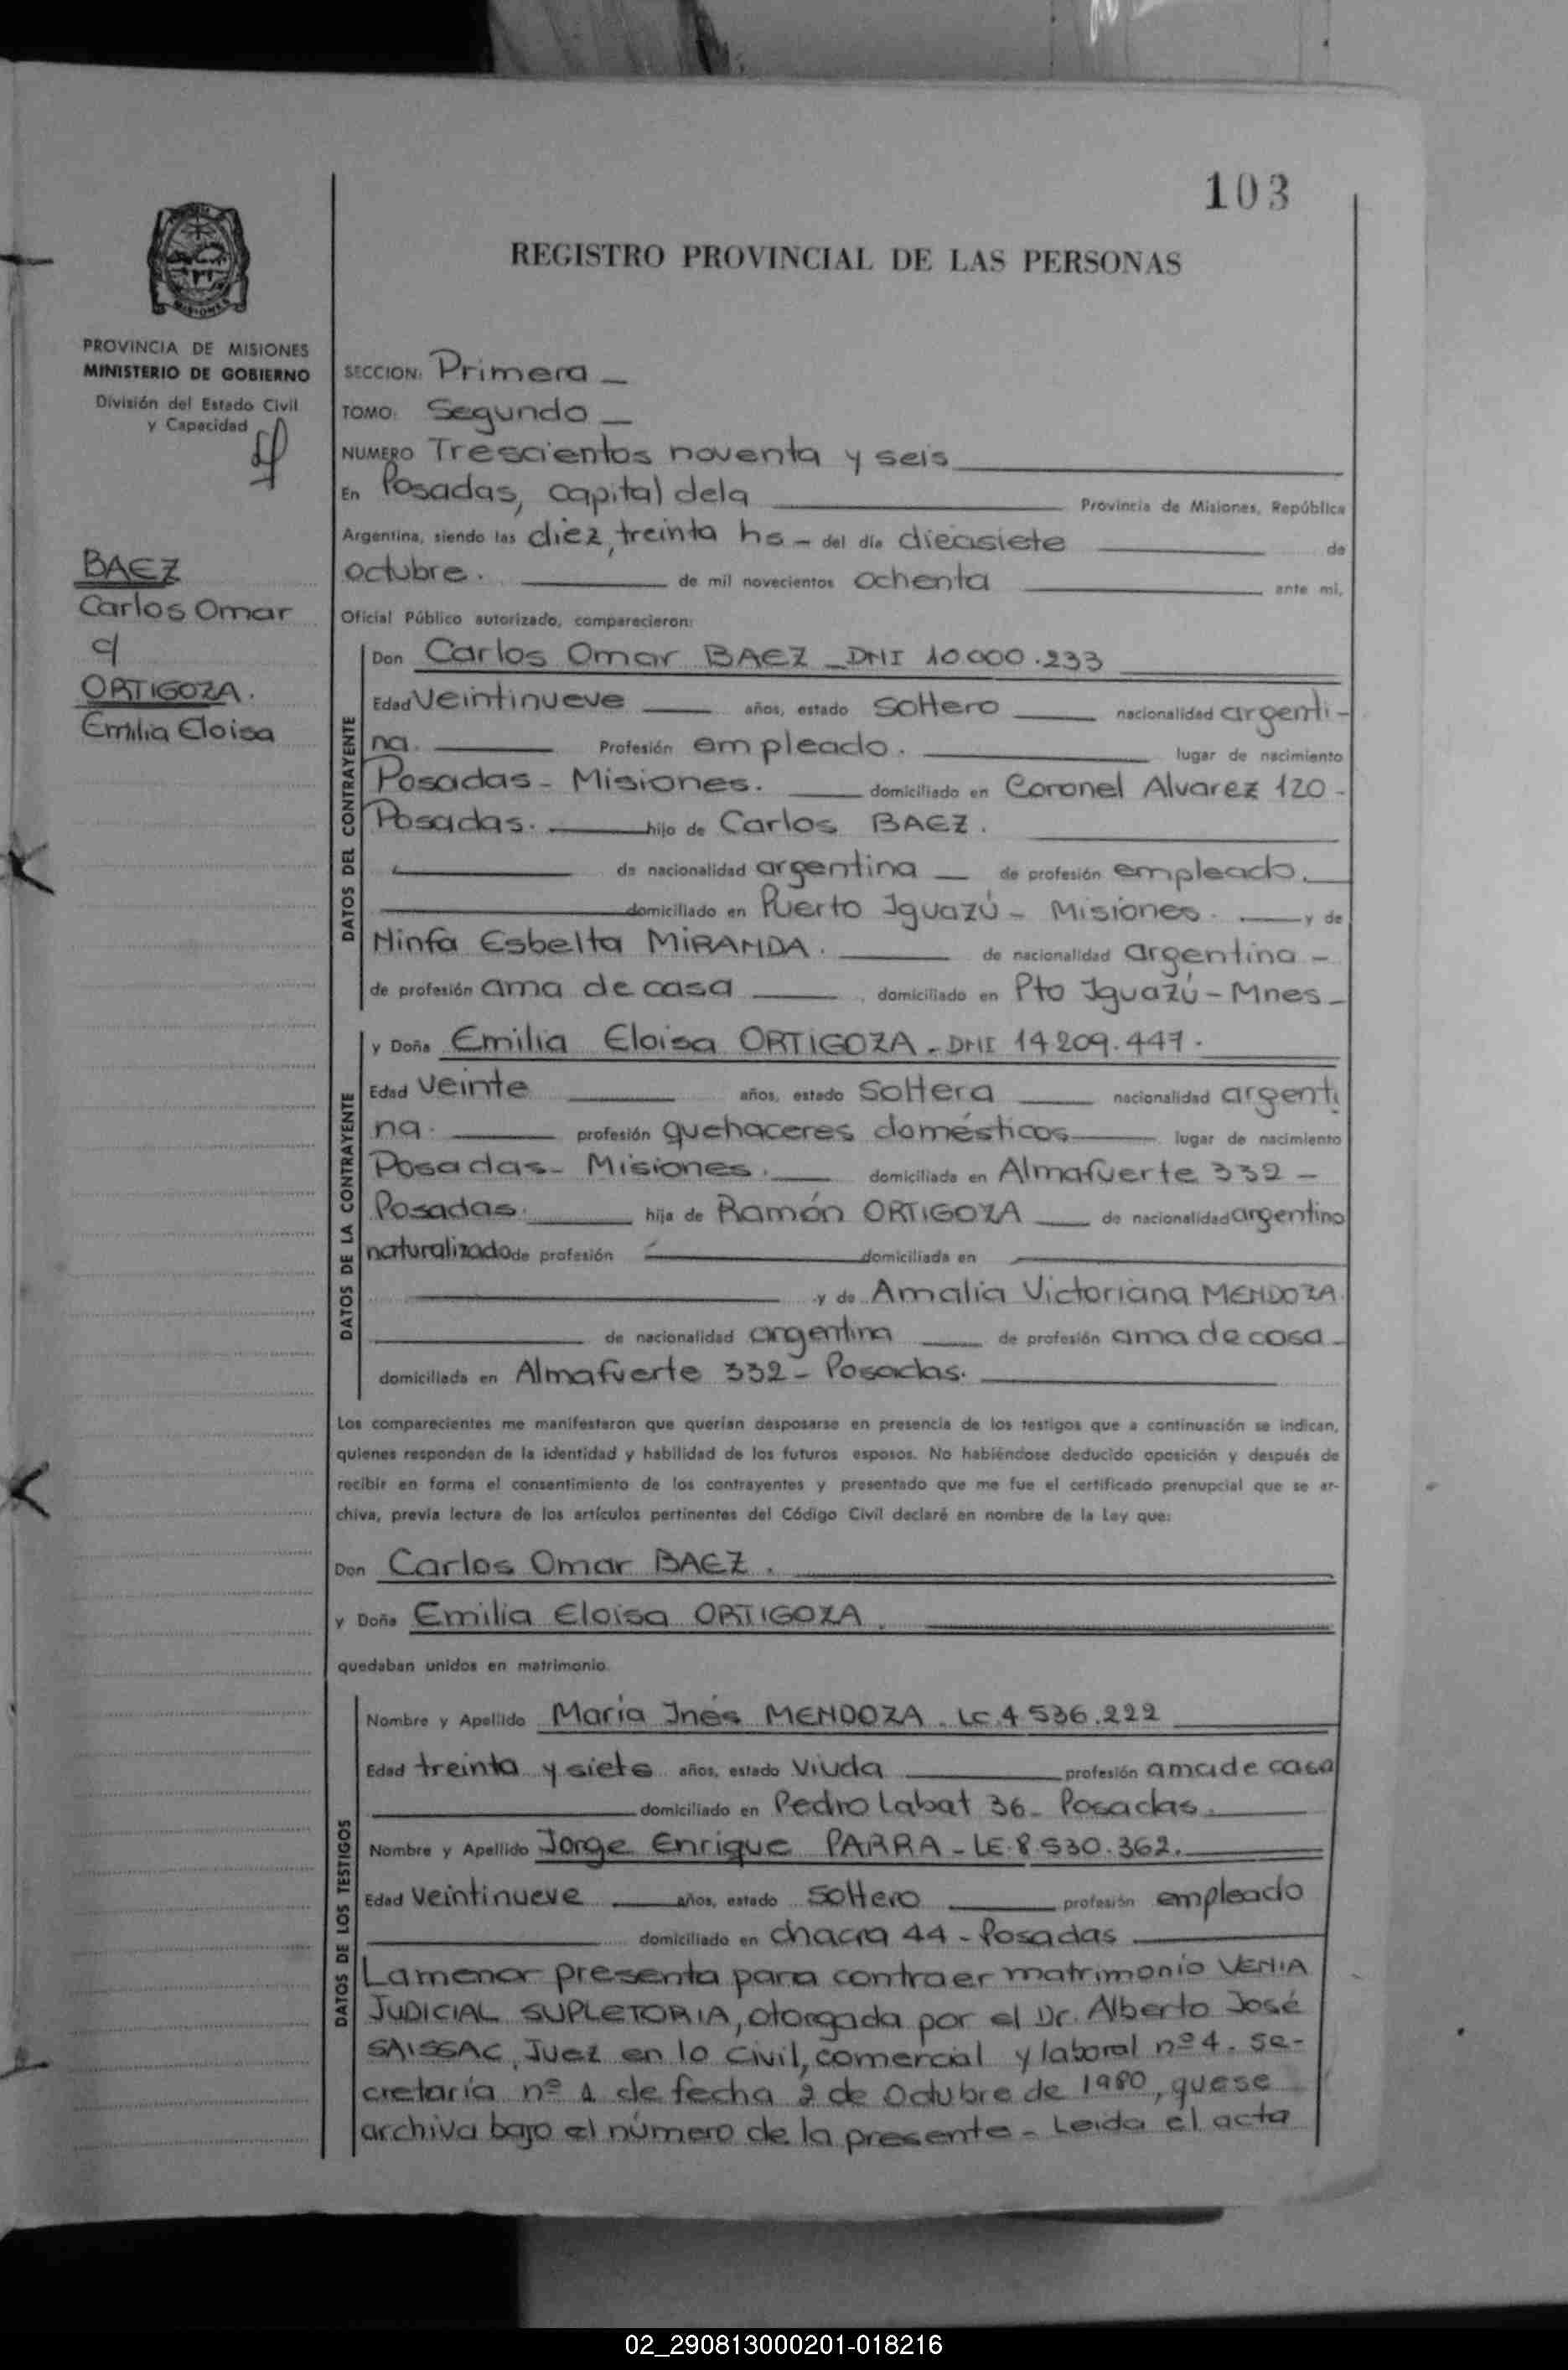 103
REGISTRO PROVINCIAL DE LAS PERSONAS
MISIONES
PROVINCIA DE MISIONES
MINISTERIO DE GOBIERNO
División del Estado Civil
y Capacidad
BAEZ
Carlos Omar
c/
ORTIGOZA.
Emilia Eloisa
SECCION: Primera _
TOMO: Segundo _
NUMERO Trescientos noventa y seis
En Posadas, capital dela Provincia de Misiones, República
Argentina, siendo las diez, treinta hs - del día diecisiete de
octubre. de mil novecientos ochenta ante mí,
Oficial Público autorizado, comparecieron:
DATOS DEL CONTRAYENTE
Don Carlos Omar BAEZ _ DNI 10000.233
Edad Veintinueve años, estado soltero nacionalidad argenti-
na. Profesión empleado. lugar de nacimiento
Posadas - Misiones. domiciliado en Coronel Alvarez 120 -
Posadas. hijo de Carlos BAEZ.
de nacionalidad argentina _ de profesión empleado.
domiciliado en Puerto Iguazú - Misiones. y de
Ninfa Esbelta MIRANDA. de nacionalidad argentina -
de profesión ama de casa , domiciliado en Pto Iguazú - Mnes _
DATOS DE LA CONTRAYENTE
y Doña Emilia Eloisa ORTIGOZA - DNI 14209.447.
Edad veinte años, estado soltera nacionalidad argenti
na. profesión quehaceres domésticos lugar de nacimiento
Posadas - Misiones. domiciliada en Almafuerte 332 -
Posadas. hija de Ramón ORTIGOZA de nacionalidad argentino
naturalizado de profesión domiciliada en
y de Amalia Victoriana MENDOZA.
de nacionalidad argentina de profesión ama de casa -
domiciliada en Almafuerte 332 - Posadas.
Los comparecientes me manifestaron que querían desposarse en presencia de los testigos que a continuación se indican,
quienes responden de la identidad y habilidad de los futuros esposos. No habiéndose deducido oposición y después de
recibir en forma el consentimiento de los contrayentes y presentado que me fue el certificado prenupcial que se ar-
chiva, previa lectura de los artículos pertinentes del Código Civil declaré en nombre de la Ley que:
Don Carlos Omar BAEZ.
y Doña Emilia Eloisa ORTIGOZA.
quedaban unidos en matrimonio.
DATOS DE LOS TESTIGOS
Nombre y Apellido María Inés MENDOZA. LC.4536.222
Edad treinta y siete años, estado viuda profesión amade casa
domiciliado en Pedro Labat 36 - Posadas.
Nombre y Apellido Jorge Enrique PARRA - LE.8.530.362.
Edad veintinueve años, estado soltero profesión empleado
domiciliado en chacra 44 - Posadas
Lamenor presenta para contraer matrimonio VENIA
JUDICIAL SUPLETORIA, otorgada por el Dr. Alberto José
SAISSAC, Juez en lo civil, comercial y laboral nº4. se-
cretaría nº 1 de fecha 2 de Octubre de 1980, quese
archiva bajo el número de la presente - Leida el acta
02_290813000201-018216